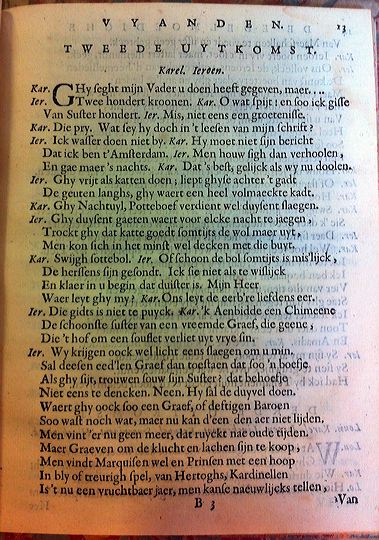 VYANDEN. 13
TWEEDE UYTKOMST.
Karel. Ieroen.
Kar. GHy seght mijn Vader u doen heeft gegeven, maer....
Ier. Twee hondert kroonen. Kar. O wat spijt! en soo ick gisse
Van Suster hondert. Ier. Mis, niet eens een groetenisse.
Kar. Die pry. Wat sey hy doch in 't leesen van mijn schrift?
Ier. Ick wasser doen niet by. Kar. Hy moet niet sijn bericht
Dat ick ben t'Amsterdam. Ier. Men houw sigh dan verhoolen,
En gae maer 's nachts. Kar. Dat's best, gelijck als wy nu doolen.
Ier. Ghy vrijt als katten doen; liept ghyse achter 't gadt
De geuten langhs, ghy waert een heel volmaeckte kadt.
Kar. Ghy Nachtuyl, Potteboef verdient wel duysent slaegen.
Ier. Ghy duysent gaeten waert voor elcke nacht te jaegen,
Trockt ghy dat katte goedt somtijts de wol maer uyt,
Men kon sich in het minst wel decken met die buyt.
Kar. Swijgh sottebol. Ier. Of schoon de bol somtijts is mis'lijck,
De hersens sijn gesondt. Ick sie niet als te wislijck
En klaer in u begin dat duister is. Mijn Heer
Waer leyt ghy my? Kar. Ons leyt de eerb're liefdens eer.
Ier. Die gidts is niet te puyck. Kar. 'k Aenbidde een Chimeene
De schoonste suster van een vreemde Graef, die geene,
Die 't hof om een soufflet verliet uyt vrye sin.
Ier. Wy krijgen oock wel licht eens slaegen om u min.
Sal deesen eed'len Graef dan toestaen dat soo 'n boefje,
Als ghy sijt, trouwen souw sijn Suster? dat behoefje
Niet eens te dencken. Neen. Hy sal de duyvel doen.
Waert ghy oock soo een Graef, of deftigen Baroen
Soo wast noch wat, maer nu kan d'een den aer niet lijden,
Men vint 'er nu geen meer, dat ruyckt nae oude tijden.
Maer Graeven om de klucht en lachen sijn te koop,
Men vindt Marquisen wel en Prinsen met een hoop
In bly of treurigh spel, van Hertoghs, Kardinellen
Is 't nu een vruchtbaer jaer, men kanse nauwlijcks tellen,
B 3 Van